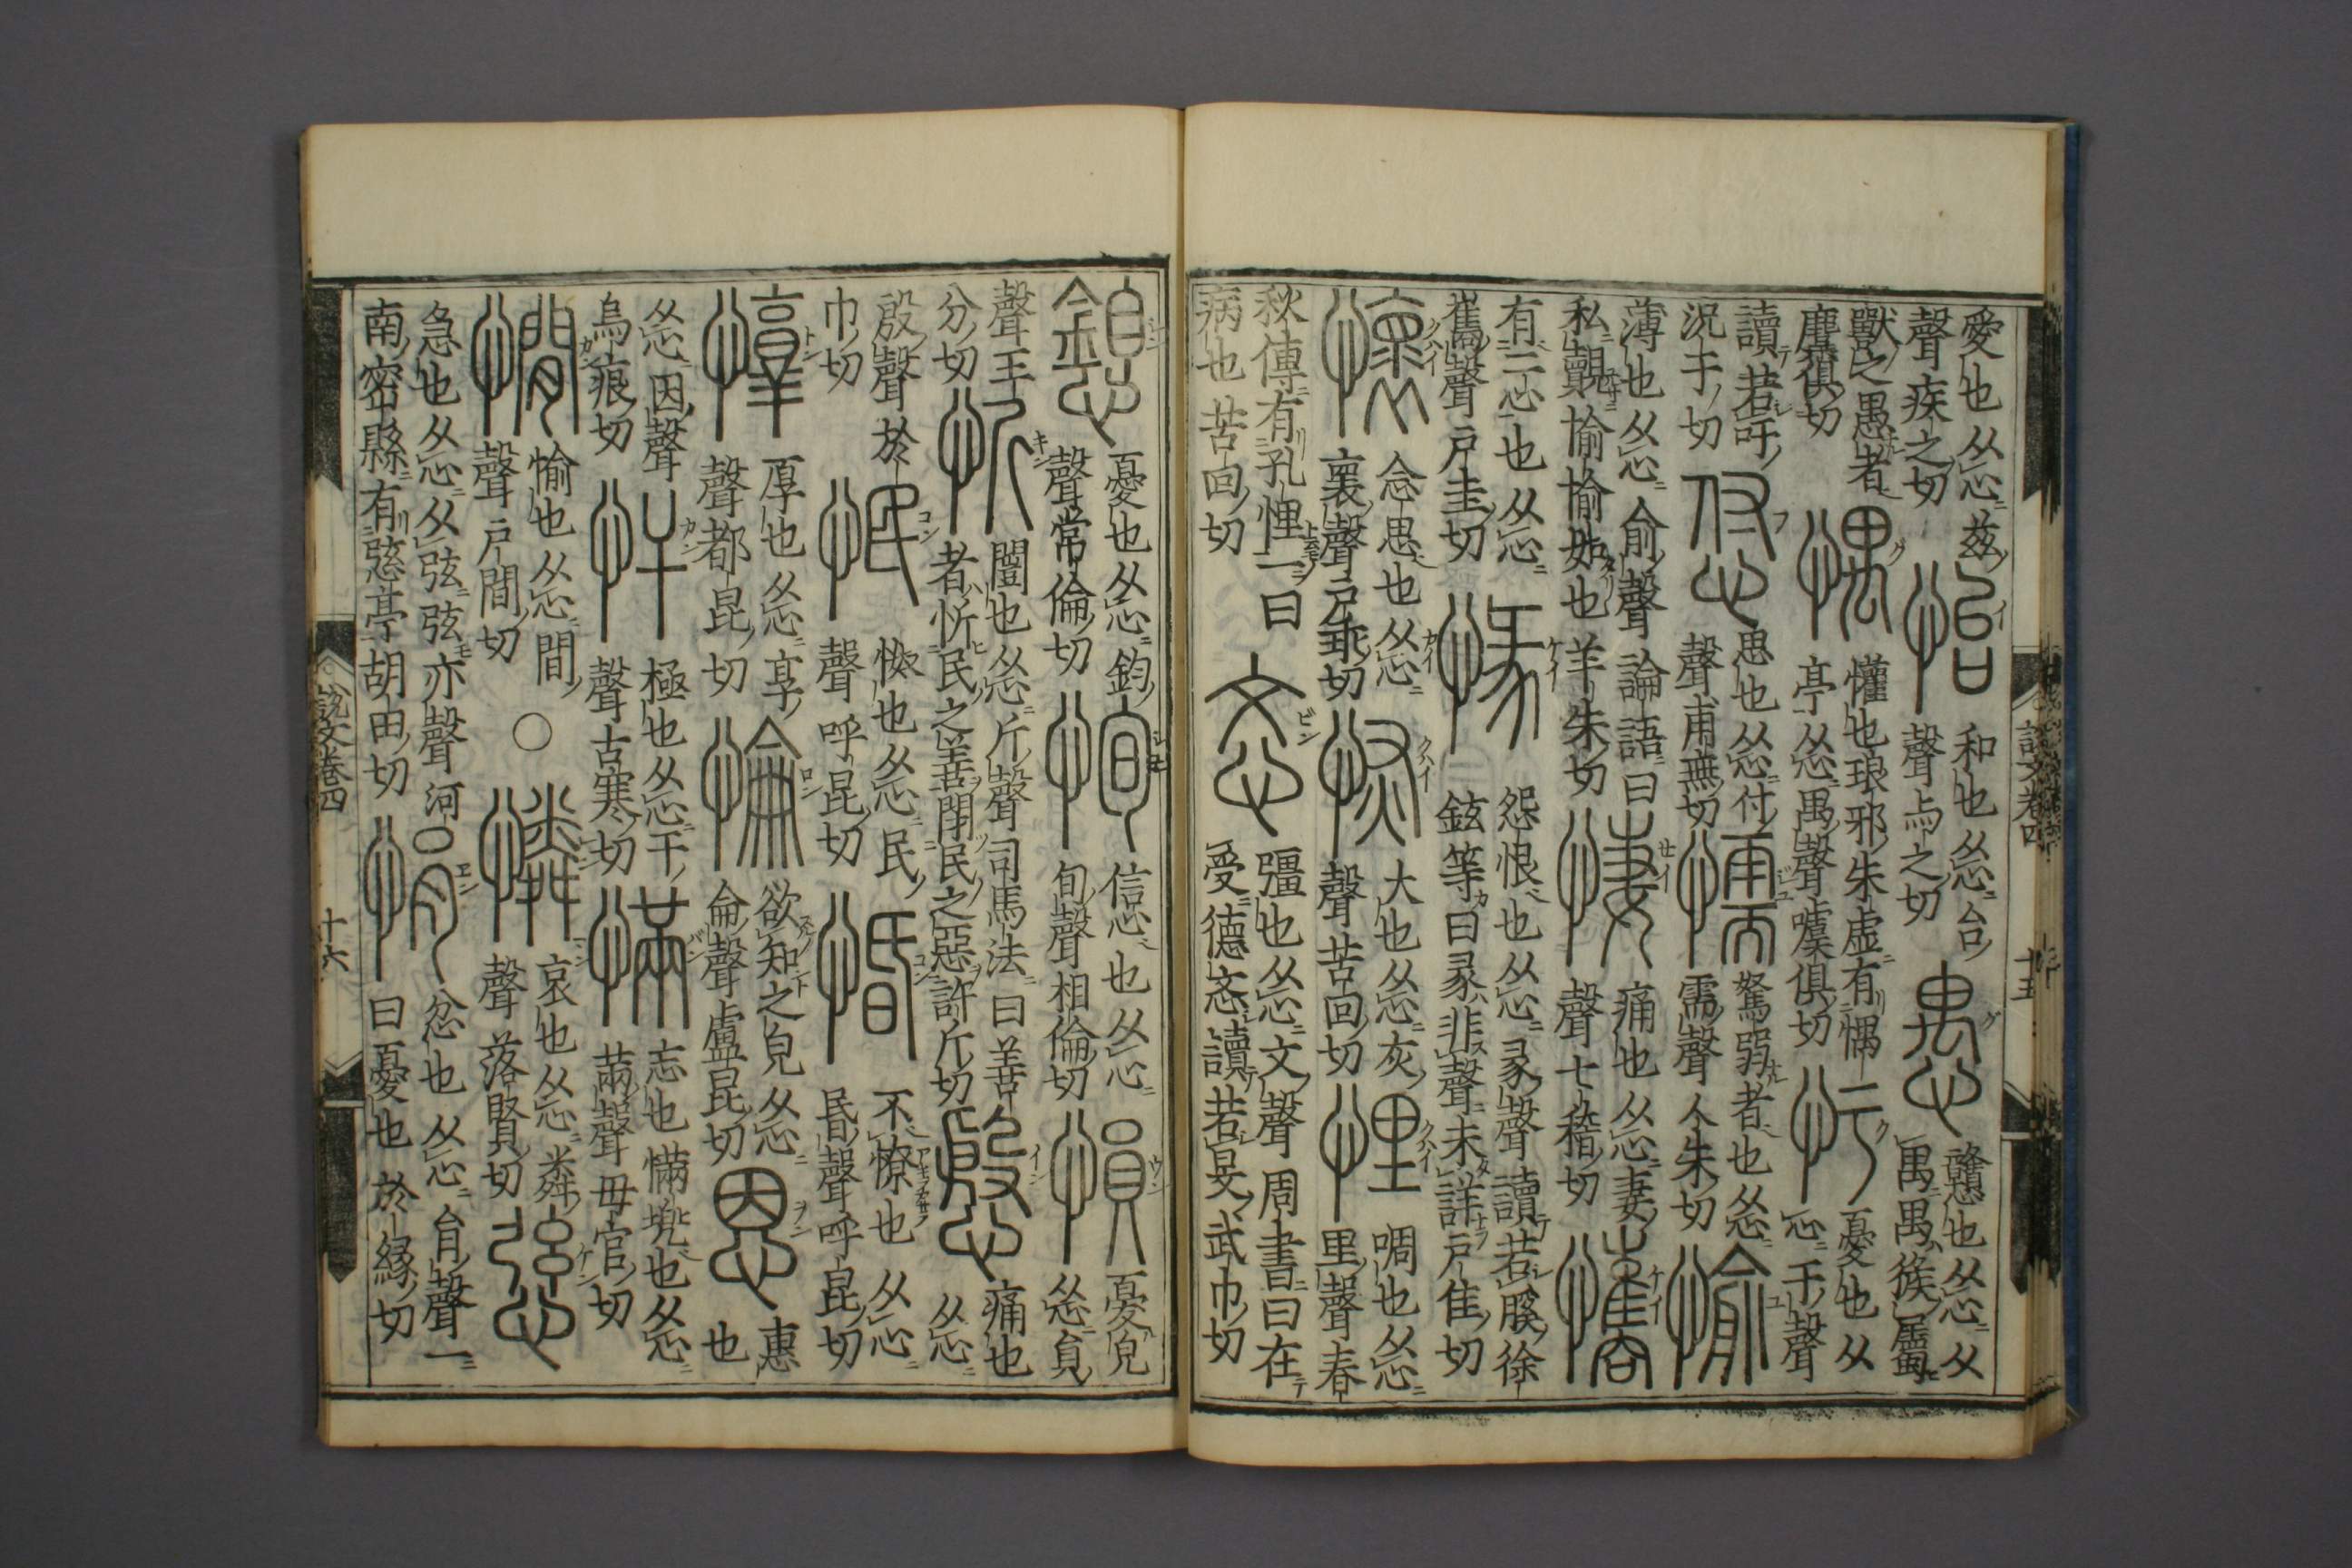 愛也从心兹
聲疾之切
怡
和也从心台
聲与之切
愚
戇也从心从
禺禺猴屬
獸之愚者
麌俱切
愚
懽也琅邪朱虛有愚
亭从心禺聲噳俱切
忬
憂也从
心于聲
讀若吁
況于切
怤
思也从心付
聲甫無切
懦
駑弱者也从心
需聲人朱切
愉
薄也从心俞聲論語曰
私覿愉愉如也羊朱切
悽
痛也从心妻
聲七稽切
懏
有二心也从心
巂聲戶圭切
㥟
怨恨也从心彖聲讀若膎徐
鉉等曰彖非聲未詳戶佳切
懷
念思也从心
褱聲戶乖切
恢
大也从心灰
聲苦回切
悝
啁也从心
里聲春
秋傳有孔悝一曰
病也苦回切
忞
彊也从心文聲周書曰在
受德忞讀若旻武巾切
說文卷四
十五
銞
憂也从心鈞
聲常倫切
恂
信心也从心
旬聲相倫切
愪
憂皃
从心員
聲王
分切
忻
闓也从心斤聲司馬法曰善
者忻民之善閉民之惡許斤切
慇
痛也
从心
殷聲於
巾切
怋
怓也从心民
聲呼昆切
惛
不憭也从心
昏聲呼昆切
惇
厚也从心享
聲都昆切
惀
欲知之皃从心
侖聲盧昆切
恩
惠
也
从心因聲
烏痕切
忓
極也从心干
聲古寒切
慲
忘也慲兜也从心
㒼聲毋官切
憪
愉也从心間
聲戶間切
〇
憐
哀也从心粦
聲落賢切
慈
急也从心从弦弦亦聲河
南密縣有慈亭胡田切
悁
忿也从心肙聲一
曰憂也於緣切
說文卷四
十六